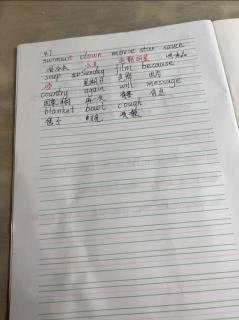 swimsuit clown movie star sauce
小丑 电影明星
soup Sunday film because
汤 星期日 电影 因为
country again will message
国家 再一次 信息
blanket bowl cough
毯子 咳嗽